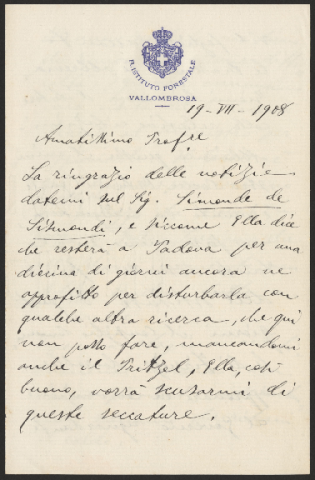 R. ISTITUTO FORESTALE
VALLOMBROSA
19-VII-1908
Amatissimo Profre
La ringrazio delle notizie
datemi sul Sig. Simonde de
Sismondi, e siccome Ella dice
che resterà a Padova per una
diecina di giorni ancora ne
approfitto per disturbarla con
qualche altra ricerca, che qui
non posso fare, mancandomi
anche il Pritzel, Ella, così
buono, vorrà scusarmi di
queste seccature.